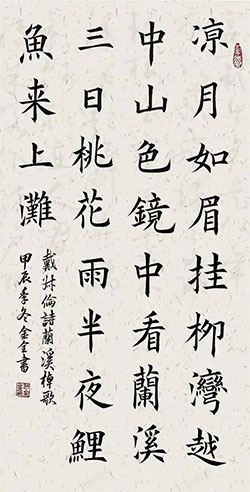 凉月如眉挂柳灣越
中山色鏡中看蘭溪
三日桃花雨半夜鯉
魚来上灘
戴叔倫詩蘭溪棹歌
甲辰季冬金全書